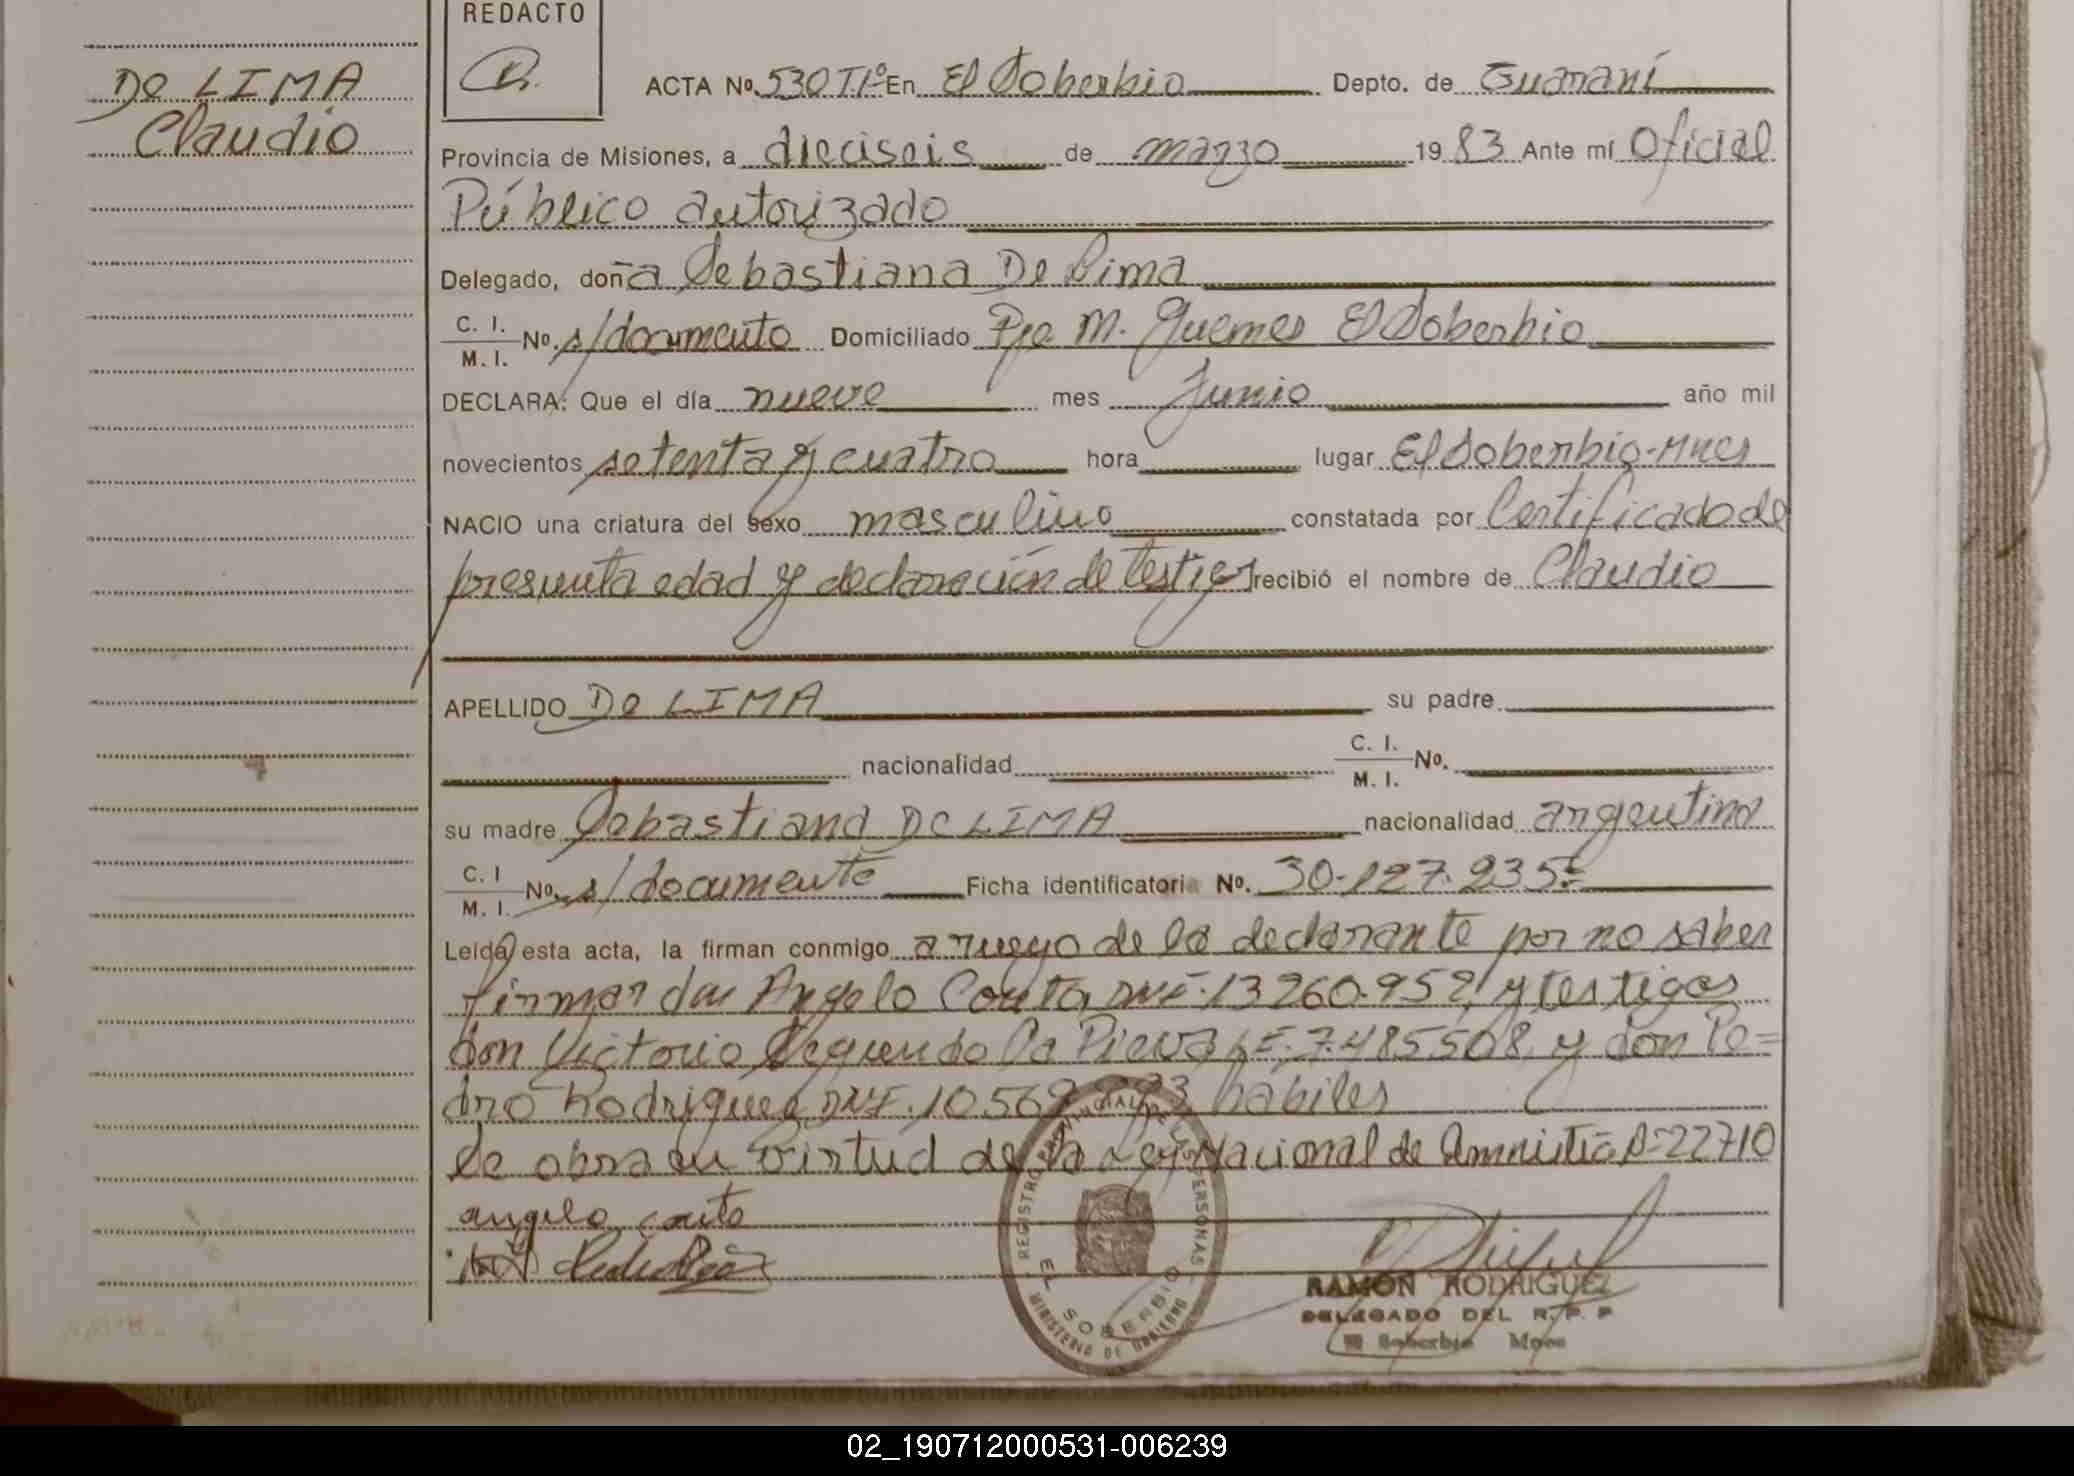 REDACTO
De LIMA
Claudio
ACTA No. 530 T.Iº En El Soberbio Depto. de Guaraní
Provincia de Misiones, a dieciseis de marzo 1983 Ante mí Oficial
Público autorizado
Delegado, doña Sebastiana De Lima
C. I.
M. I. No. s/documento Domiciliado Pje M. Guemes El Soberbio
DECLARA: Que el día nueve mes Junio año mil
novecientos setenta y cuatro hora lugar El Soberbio-Mnes
NACIO una criatura del sexo masculino constatada por Certificado de
presunta edad y declaración de testigos recibió el nombre de Claudio
APELLIDO De LIMA su padre
nacionalidad C. I.
M. I. No.
su madre Sebastiana De LIMA nacionalidad argentina
C. I
M. I. No. s/documento Ficha identificatoria No. 30.127.235
Leida esta acta, la firman conmigo a ruego de la declarante por no saber
firmar don Angelo Couto, DNI. 13260.952, y testigos
don Victorio Segundo Da Pieva LE. 7.485508, y don Pe=
dro Rodriguez DNI. 10.569 habiles
Se obra en virtud de la Ley Nacional de Amnistia 22710
angelo couto
REGISTRO PROVINCIAL DE LAS PERSONAS
EL SOBERBIO
MINISTERIO DE GOBIERNO
RAMON RODRIGUEZ
DELEGADO DEL R. P. P
El Soberbio Mnes
02_190712000531-006239